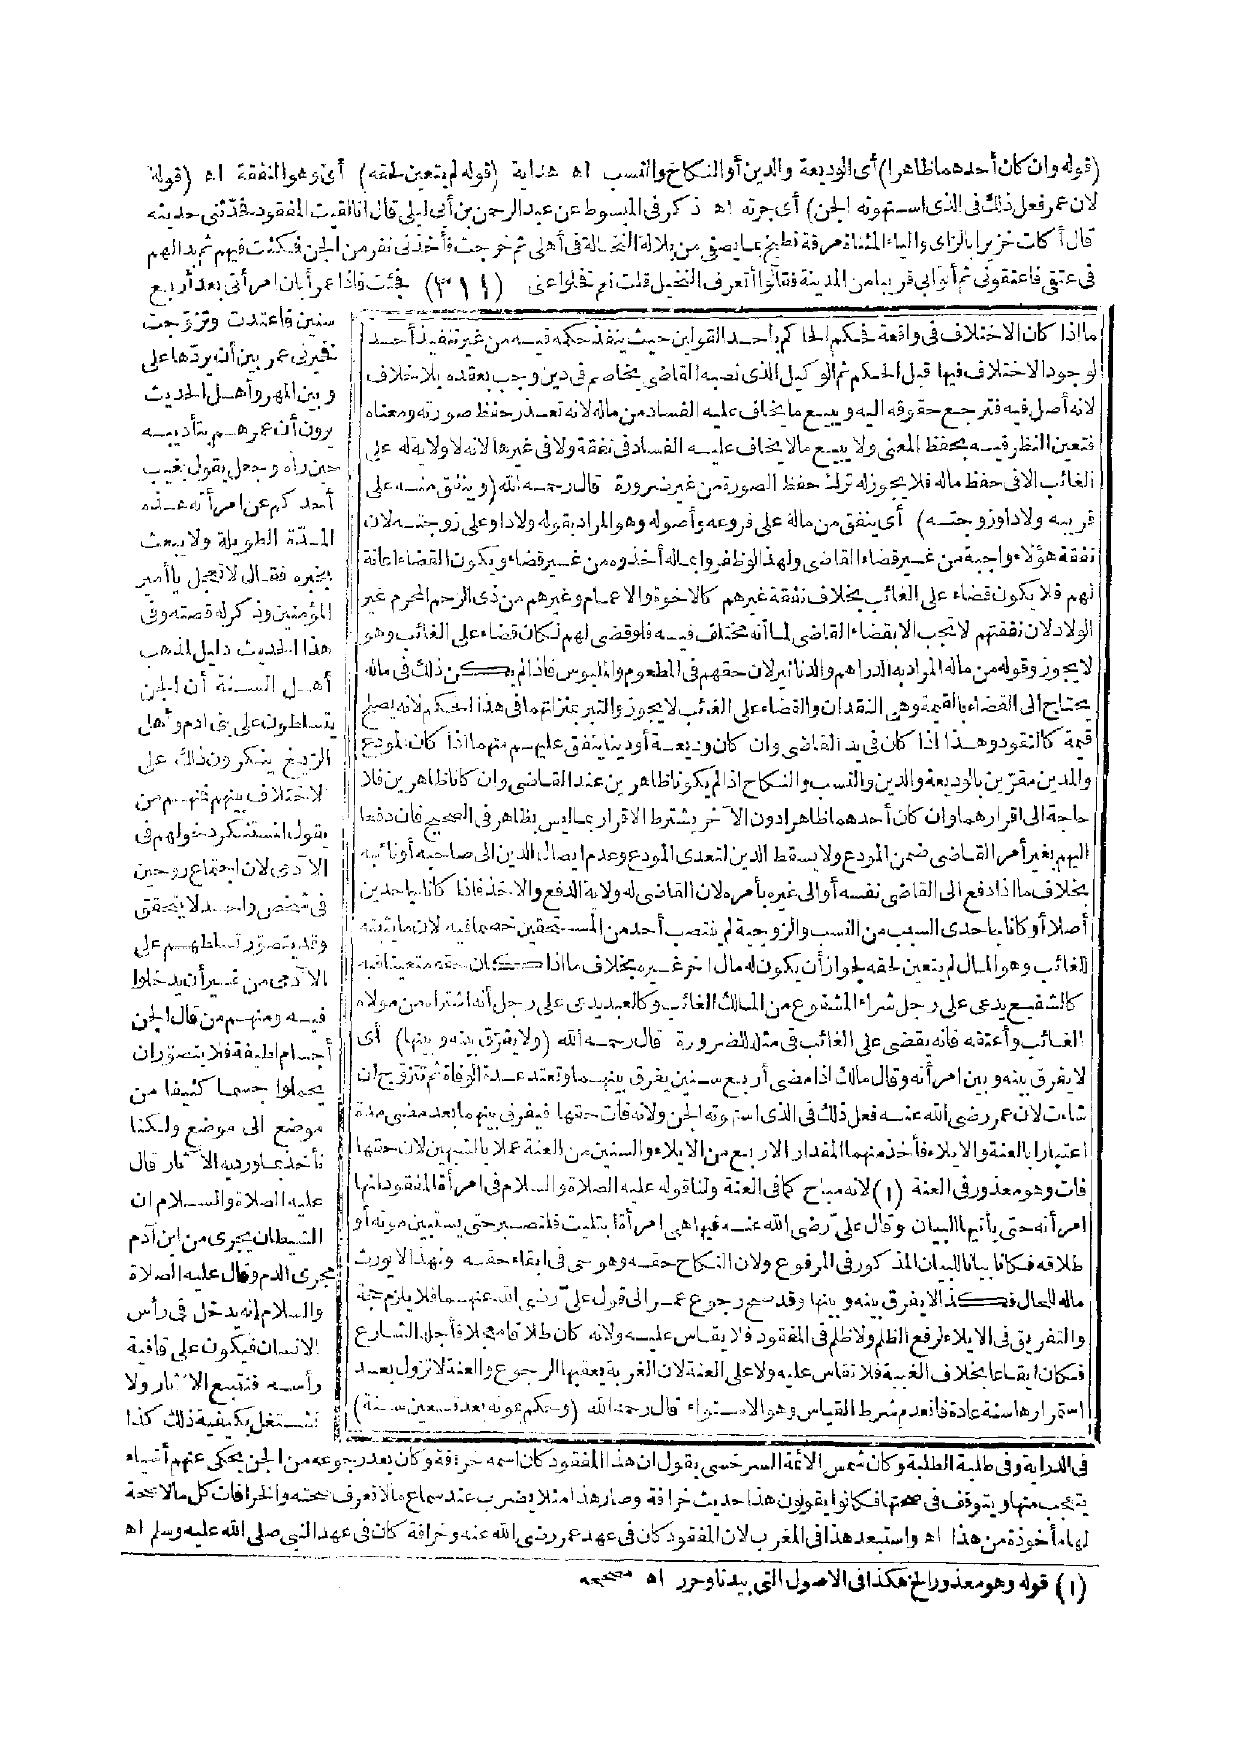 (قوله وان كان أحدهما ظاهرا) أى الوديعة والدين أو النكاح والنسب اه هداية (قوله لم يتعين لحقه) أى وهو النفقة اه (قوله
لان عمر فعل ذلك فى الذى استهوته الجن) أى جرته اه ذكر فى المبسوط عن عبد الرحمن بن أبى ليلى قال انا لقيت المفقود فحدثنى حديثه
قال أكلت خزيرا بالزاى والياء المثناة مرقة تطبخ بما يصفى من بلالة النخالة فى أهلى ثم خرجت فأخذنى نفر من الجن فكنت فيهم ثم بدالهم
فى عتقى فاعتقونى ثم أتوابى قريبا من المدينة فقالوا أتعرف النخيل قلت نعم فخلوا عنى (٣١١) فجئت فاذا عمر أبان امرأتى بعد أربع
سنين فاعتدت وتزوجت
فخيرنى عمر بين أن يردها على
وبين المهر وأهل الحديث
يرون أن عمر هم بتأديبه
حين رآه وجعل يقول يغيب
أحدكم عن امرأته هذه
المدة الطويلة ولا يبعث
بخبره فقال لا تعجل يا أمير
المؤمنين وذكر له قصته وفى
هذا الحديث دليل لمذهب
أهل السنة أن الجن
يتسلطون على بنى ادم وأهل
الزيغ ينكرون ذلك على
اختلاف بينهم فمنهم من
يقول المستنكر دخولهم فى
الآدمى لان اجتماع روحين
فى شخص واحد لا يتحقق
وقد يتصور تسلطهم على
الآدمى من غير أن يدخلوا
فيه ومنهم من قال الجن
أجسام لطيفة فلا يتصور ان
يحملوا جسما كثيفا من
موضع الى موضع ولكنا
نأخذ بما وردبه الآثار قال
عليه الصلاة والسلام ان
الشيطان يجرى من ابن آدم
مجرى الدم وقال عليه الصلاة
والسلام إنه يدخل فى رأس
الانسان فيكون على قافية
رأسه فنتبع الآثار ولا
نشتغل بكيفية ذلك كذا
ما اذا كان الاختلاف فى واقعة فحكم الحاكم بأحد القولين حيث ينفذ حكمه فيه من غير تنفيذ أحد
لوجود الاختلاف فيها قبل الحكم ثم الوكيل الذى نصبه القاضى يخاصم فى دين وجب بعقده بلا خلاف
لانه أصل فيه فترجع حقوقه اليه ويبيع ما يخاف عليه الفساد من ماله لانه تعذر حفظ صورته ومعناه
فتعين النظر فيه بحفظ المعنى ولا يبيع مالا يخاف عليه الفساد فى نفقة ولا فى غيرها لانه لا ولاية له على
الغائب الا فى حفظ ماله فلا يجوز له ترك حفظ الصورة من غير ضرورة قال رحمه الله (وينفق منه على
قريبه ولادا وزوجته) أى ينفق من ماله على فروعه وأصوله وهو المراد بقوله ولادا وعلى زوجته لان
نفقة هؤلاء واجبة من غير قضاء القاضى ولهذا لو ظفروا بماله أخذوه من غير قضاء ويكون القضاء اعانة
لهم فلا يكون قضاء على الغائب بخلاف نفقة غيرهم كالاخوة والاعمام وغيرهم من ذى الرحم المحرم غير
الولاد لان نفقتهم لا تجب الا بقضاء القاضى لما أنه مختلف فيه فلو قضى لهم لكان قضاء على الغائب وهو
لا يجوز وقوله من ماله المراد به الدراهم والدنانير لان حقهم فى المطعوم والملبوس فاذا لم يكن ذلك فى ماله
يحتاج الى القضاء بالقيمة وهى النقدان والقضاء على الغائب لا يجوز والتبر بمنزلتهما فى هذا الحكم لانه يصلح
قيمة كالنقود وهذا اذا كان فى يد القاضى وان كان وديعة أو دينا ينفق عليهم منهما اذا كان المودع
والمدين مقرين بالوديعة والدين والنسب والنكاح اذا لم يكونا ظاهرين عند القاضى وان كانا ظاهرين فلا
حاجة الى اقرارهما وان كان أحدهما ظاهرا دون الآخر يشترط الاقرار بما ليس بظاهر فى الصحيح فان دفعا
اليهم بغير أمر القاضى ضمن المودع ولا يسقط الدين لتعدى المودع وعدم ايصال الدين الى صاحبه أو نائبه
بخلاف ما اذا دفع الى القاضى نفسه أو الى غيره بأمره لان القاضى له ولاية الدفع والاخذ فاذا كانا جاحدين
أصلا أو كانا جاحدى السبب من النسب والزوجية لم ينتصب أحد من المستحقين خصما فيه لان ما يثبته
للغائب وهو المال لم يتعين لحقه لجواز أن يكون له مال اخر غيره بخلاف ما اذا كان حقه متعينا فيه
كالشفيع يدعى على رجل شراء المشفوع من المالك الغائب وكالعبد يدعى على رجل أنه اشتراه من مولاه
الغائب وأعتقه فانه يقضى على الغائب فى مثله للضرورة قال رحمه الله (ولا يفرق بينه وبينها) أى
لا يفرق بينه وبين امرأته وقال مالك اذا مضى أربع سنين يفرق بينهما وتعتد عدة الوفاة ثم تتزوج ان
شاءت لان عمر رضى الله عنه فعل ذلك فى الذى استهوته الجن ولانه فات حقها فيفرق بينهما بعد مضى مدة
اعتبارا بالعنة والايلاء فأخذ منهما المقدار الاربع من الايلاء والسنين من العنة عملا بالشبهين لان حقها
فات وهو معذور فى العنة (١) لانه مباح كما فى العنة ولنا قوله عليه الصلاة والسلام فى امرأة المفقود انها
امرأته حتى يأتيها البيان وقال على رضى الله عنه فيها هى امرأة ابتليت فلتصبر حتى يستبين موته أو
طلاقه فكانا بيانا للبيان المذكور فى المرفوع ولان النكاح حقه وهو حى فى ابقاء حقه ولهذا لا يورث
ماله للحال فكذا لا يفرق بينه وبينها وقد صح رجوع عمر الى قول على رضى الله عنهما فلا يلزم حجة
والتفريق فى الايلاء لرفع الظلم ولا ظلم فى المفقود فلا يقاس عليه ولانه كان طلاقا معجلا فأجله الشارع
فكان ايقاعا بخلاف الغيبة فلا تقاس عليه ولا على العنة لان الغربة يعقبها الرجوع والعنة لا تزول بعد
استمرارها سنة عادة فانعدم شرط القياس وهو الاستواء قال رحمه الله (وحكم بموته بعد تسعين سنة)
فى الدراية وفى طلبة الطلبة وكان شمس الائمة السرخسى يقول ان هذا المفقود كان اسمه خرافة وكان بعد رجوعه من الجن يحكى عنهم أشياء
يتعجب منها ويتوقف فى صحتها فكانوا يقولون هذا حديث خرافة وصار هذا مثلا يضرب عند سماع مالا تعرف صحته والخرافات كل مالا صحة
لها مأخوذة من هذا اه واستبعد هذا فى المغرب لان المفقود كان فى عهد عمر رضى الله عنه وخرافة كان فى عهد النبى صلى الله عليه وسلم اه
(١) قوله وهو معذور الخ هكذا فى الاصول التى بيدنا وحرر اه مصححه